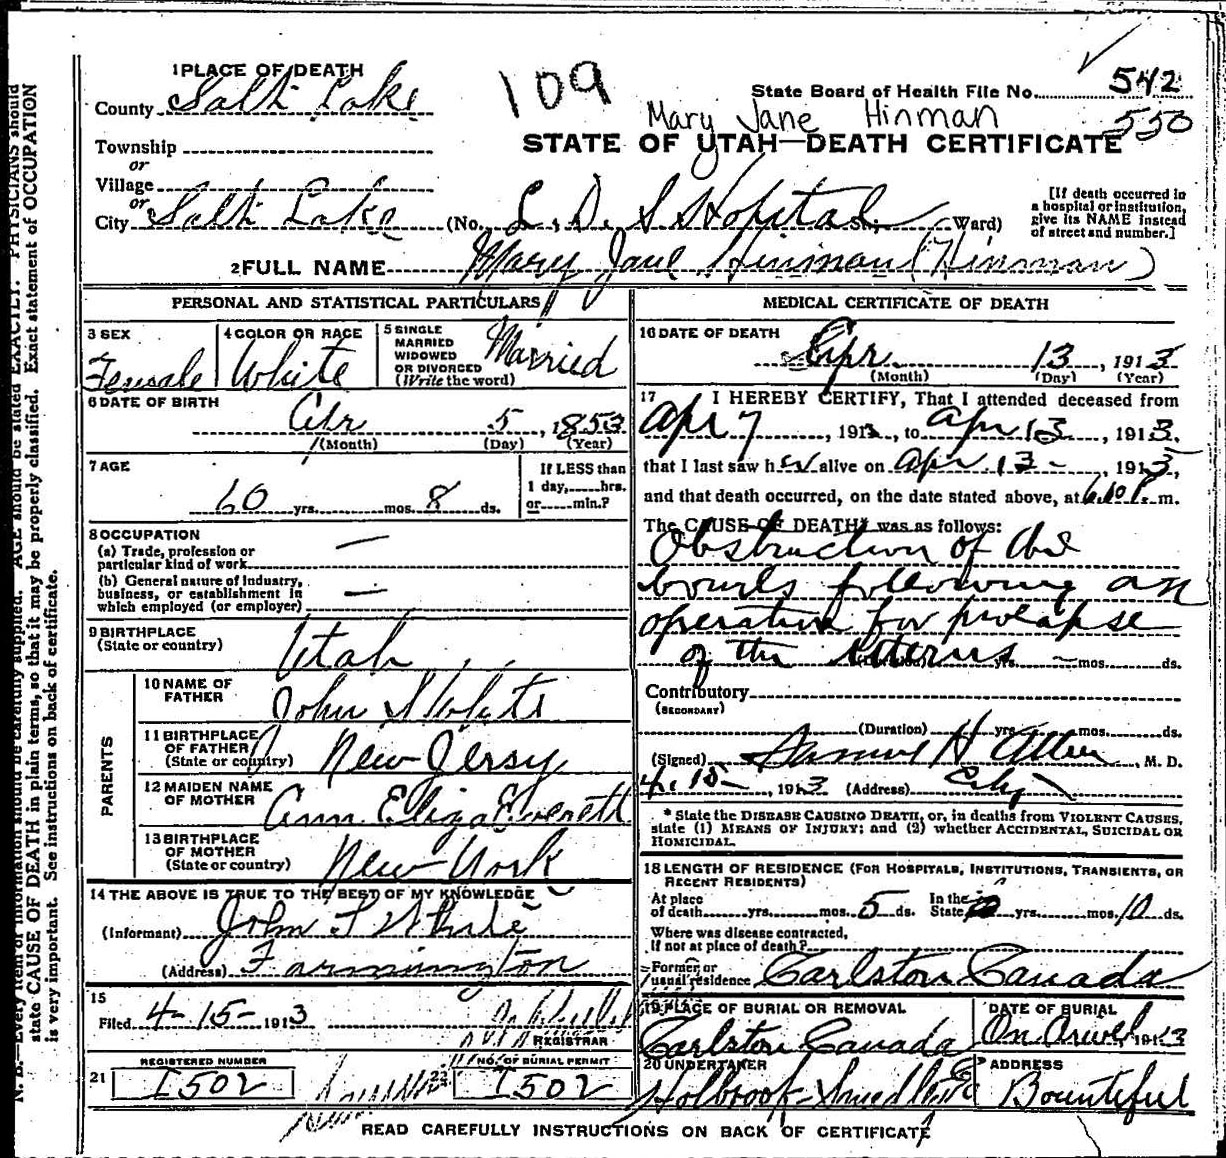 1 PLACE OF DEATH
109
County Salt Lake
State Board of Health File No. 542
550
Mary Jane Hinman
Township
STATE OF UTAH—DEATH CERTIFICATE
or
Village
or
City Salt Lake (No. L. D. S Hospital St.; Ward)
[If death occurred in
a hospital or institution,
give its NAME instead
of street and number.]
2 FULL NAME Mary Jane Hinman (Hinman)
PERSONAL AND STATISTICAL PARTICULARS
3 SEX
Female
4 COLOR OR RACE
White
5 SINGLE
MARRIED
WIDOWED
OR DIVORCED
(Write the word)
Married
6 DATE OF BIRTH
Apr 5, 1853
(Month) (Day) (Year)
7 AGE
60 yrs. mos. 8 ds.
If LESS than
1 day, hrs.
or min.?
8 OCCUPATION
(a) Trade, profession or
particular kind of work —
(b) General nature of Industry,
business, or establishment in
which employed (or employer) —
9 BIRTHPLACE
(State or country)
Utah
PARENTS
10 NAME OF
FATHER
John S White
11 BIRTHPLACE
OF FATHER
(State or country)
New Jersy
12 MAIDEN NAME
OF MOTHER
Ann Eliza Everett
13 BIRTHPLACE
OF MOTHER
(State or country)
New York
14 THE ABOVE IS TRUE TO THE BEST OF MY KNOWLEDGE
(Informant) John S White
(Address) Farmington
15
Filed 4-15- 1913
REGISTRAR
REGISTERED NUMBER
21 I502
NO. OF BURIAL PERMIT
22 I502
MEDICAL CERTIFICATE OF DEATH
16 DATE OF DEATH
Apr 13, 1913
(Month) (Day) (Year)
17 I HEREBY CERTIFY, That I attended deceased from
Apr 7, 1913, to Apr 13, 1913.
that I last saw her alive on Apr. 13-, 1913,
and that death occurred, on the date stated above, at P. m.
The CAUSE OF DEATH* was as follows:
Obstruction of the
bowels following an
operation for prolapse
of the uterus yrs. mos. ds.
Contributory
(SECONDARY)
(Duration) yrs. mos. ds.
(Signed) Samuel H Allen, M. D.
4.15-, 1913 (Address) City
* State the DISEASE CAUSING DEATH, or, in deaths from VIOLENT CAUSES,
state (1) MEANS OF INJURY; and (2) whether ACCIDENTAL, SUICIDAL OR
HOMICIDAL.
18 LENGTH OF RESIDENCE (FOR HOSPITALS, INSTITUTIONS, TRANSIENTS, OR
RECENT RESIDENTS)
At place
of death yrs. mos. 5 ds.
In the
State yrs. mos. 10 ds.
Where was disease contracted,
if not at place of death?
Former or
usual residence Carlston Canada
19 PLACE OF BURIAL OR REMOVAL
Carlston Canada
DATE OF BURIAL
On Arivel 1913
20 UNDERTAKER
Holbrook-
ADDRESS
Bountiful
READ CAREFULLY INSTRUCTIONS ON BACK OF CERTIFICATE
N. B.—Every item of information should be carefully supplied. AGE should be stated EXACTLY. PHYSICIANS should
state CAUSE OF DEATH in plain terms, so that it may be properly classified. Exact statement of OCCUPATION
is very important. See instructions on back of certificate.